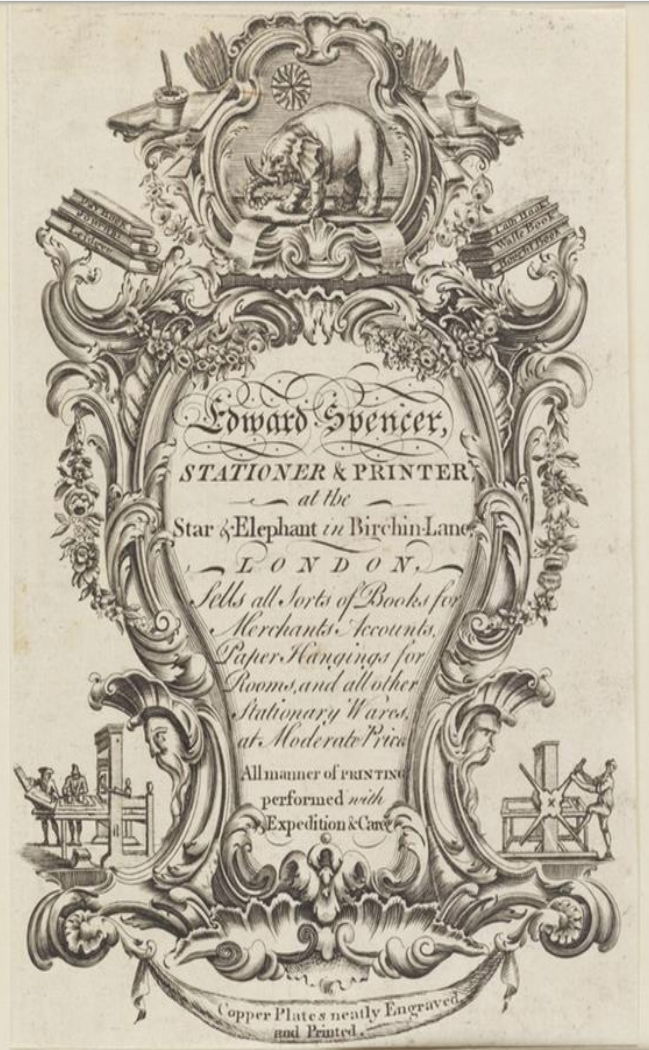 Day Book
Journal
Ledger
Cash Book
Waste Book
Bought Book
Edward Spencer,
STATIONER & PRINTER,
at the
Star & Elephant in Birchin-Lane,
LONDON,
Sells all Sorts of Books for
Merchants Accounts,
Paper Hangings for
Rooms, and all other
Stationary Wares,
at Moderate Prices
All manner of PRINTING
performed with
Expedition & Care
Copper Plates neatly Engraved
and Printed.